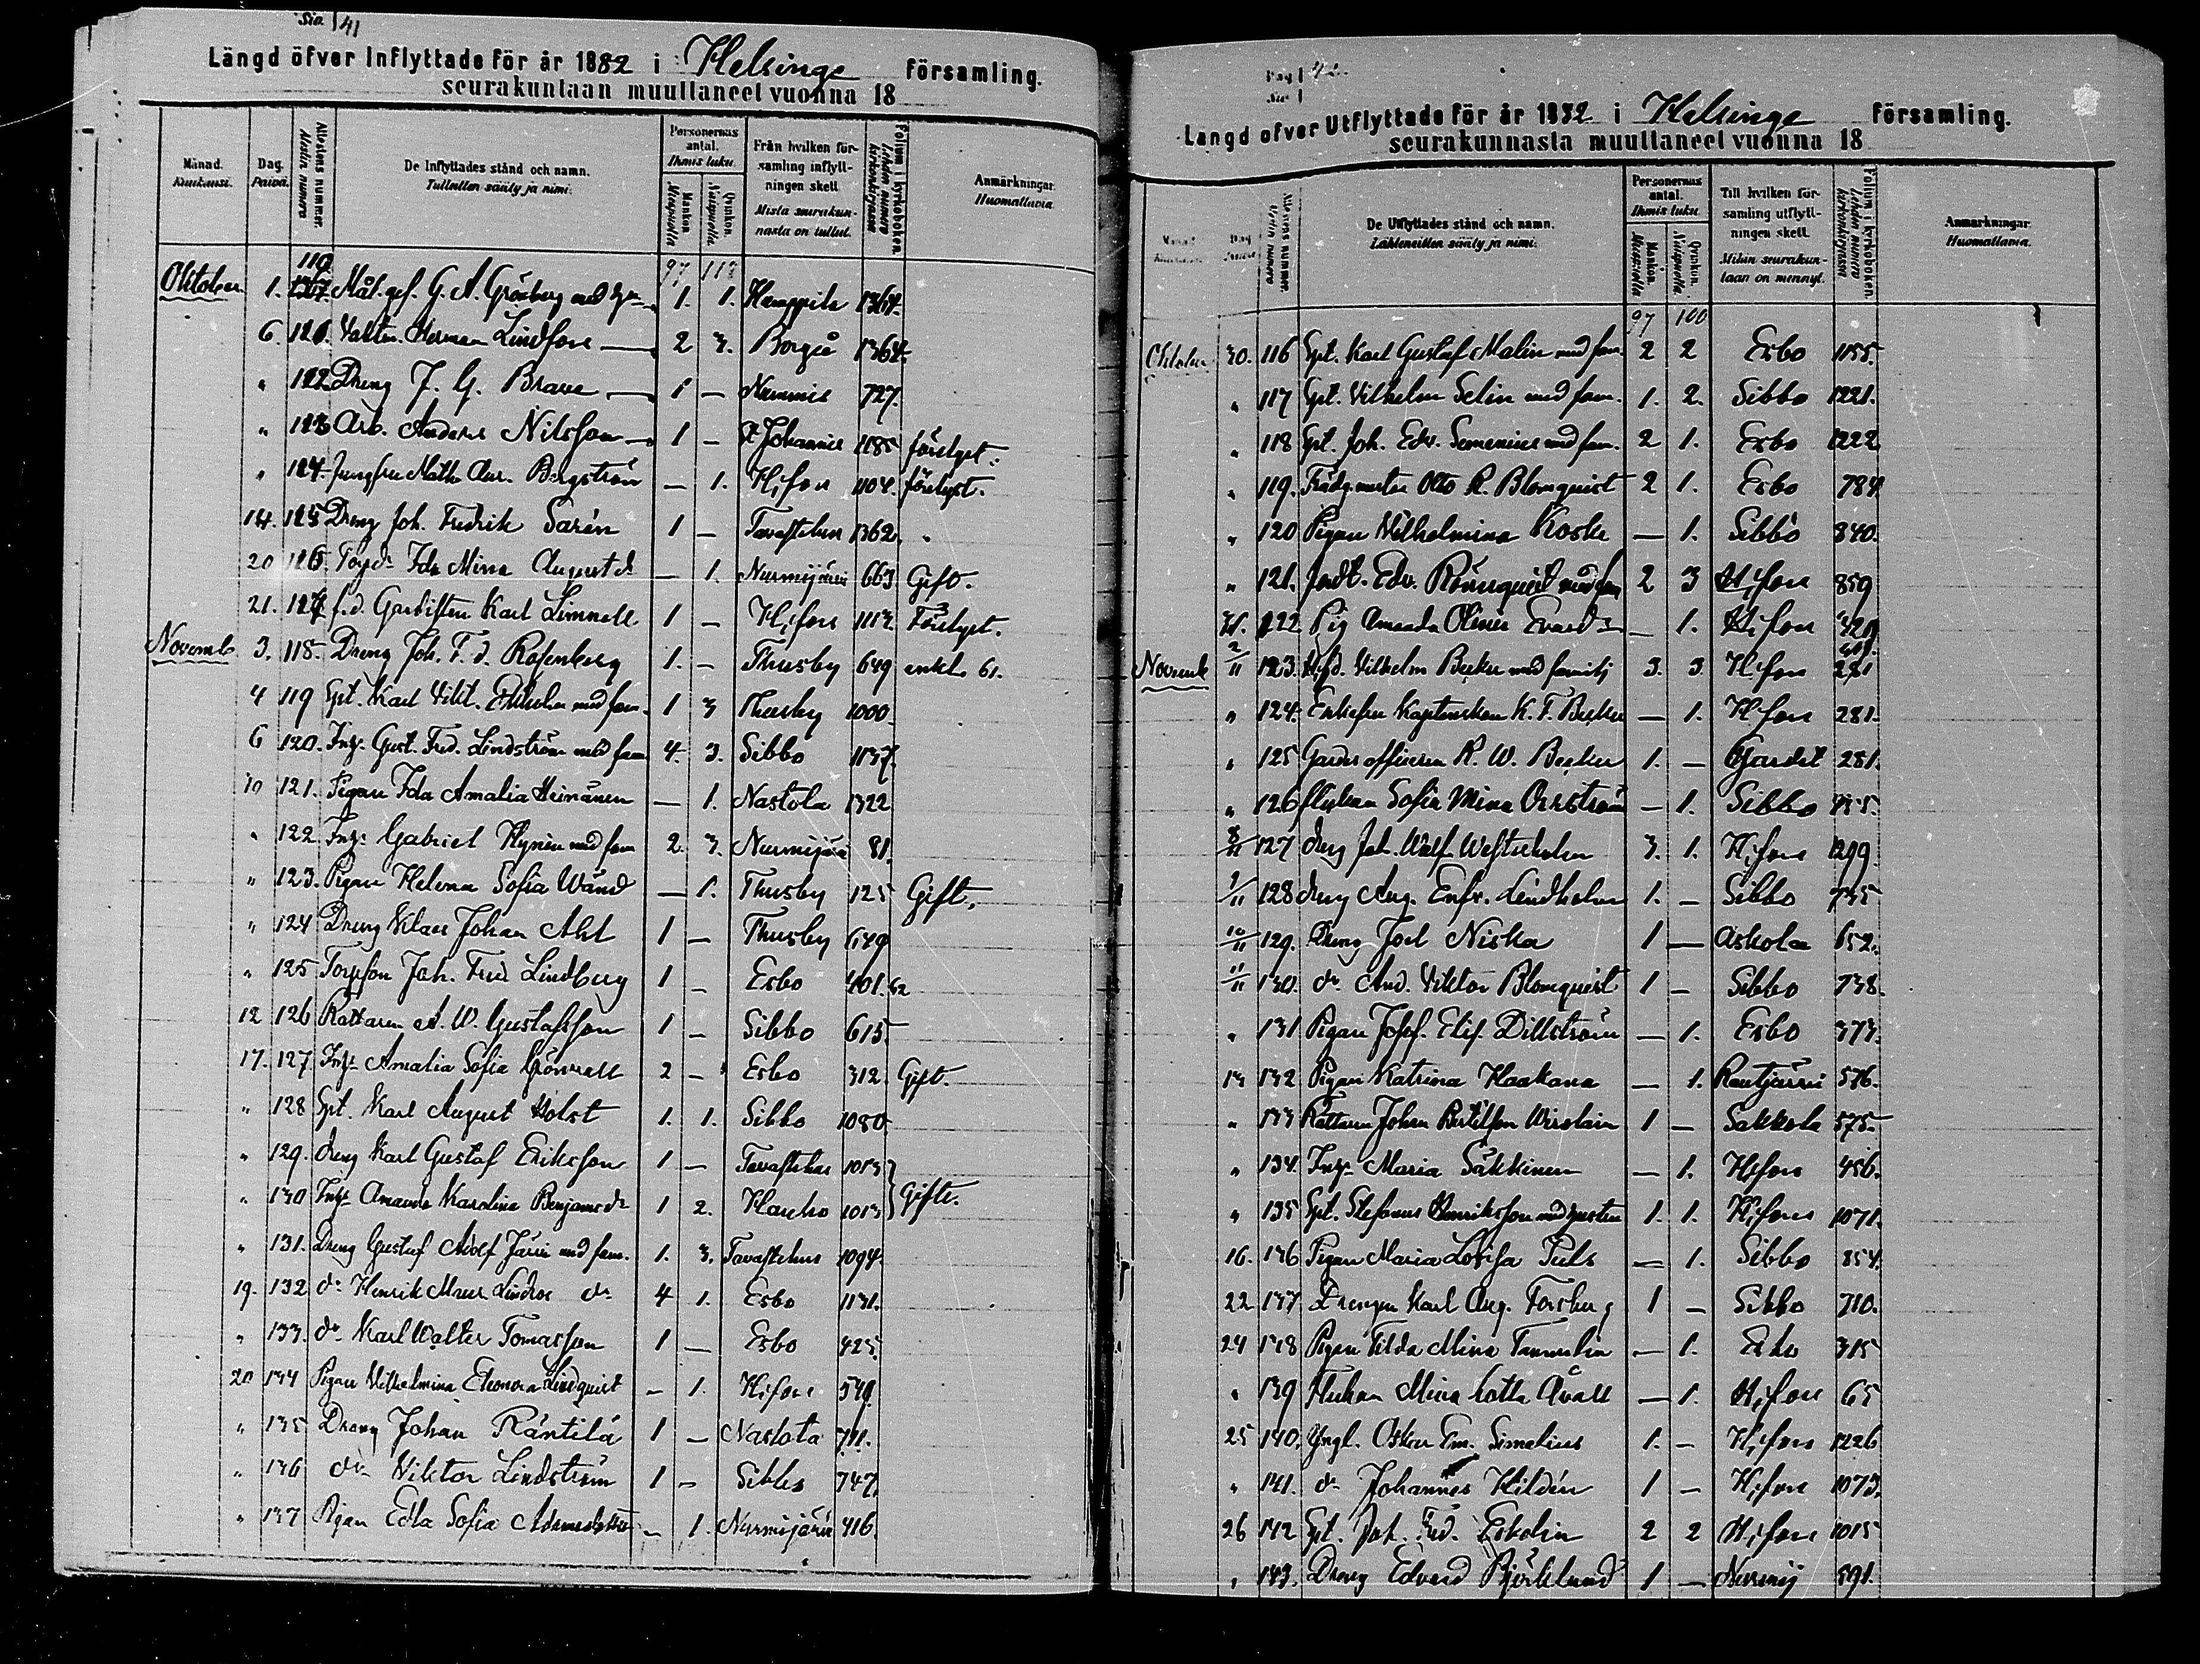 Sio. 41
Längd öfver Inflyttade för år 1882 i Helsinge församling.
seurakuntaan muuttaneet vuonna 18
Månad. Kuukausi.
Dag. Päivä.
Attestens nummer. Atestin numero
De Inflyttades stånd och namn. Tulleitten sääty ja nimi.
Personernas antal. Ihmis luku.
Mankön. Miespuolia
Qvinkön. Naispuolia
Från hvilken församling inflyttningen skett. Mista seurakunnasta on tullut.
Folium i kyrkoboken. Lehden numero kirkonkirjassa
Anmärkningar. Huomattavia.
97 118
Oktober 1. 119 Mål. ges. G. A. Grönberg med h 1. 1. Hamppila 1364.
6. 120. Vakten. Herman Lindfors 2 3. Borgå 1364.
" 122 Dreng J. G. Brave 1 — Nummis 727.
" 123 Arb. Anders Nilsson 1 — St Johannes 1185 förelyst.
" 124. Jungfru Math. Aur. Bergström — 1. H:fors 1104. förelyst.
14. 125 Dreng Joh. Fredrik Sarén 1 — Tavastehus 1362. "
20 126. Torpd. Ida Mina Augustd. — 1. Nurmijärvi 663 Gift.
21. 127. f.d. Gardisten Karl Limnell 1 — H:fors 1113. Förelyst.
Novemb. 3. 118. Dreng Joh. F. d. Rosenberg 1. — Thusby 649 enkl. 61.
4 119 Spt. Karl Vikt. Ekholm med fam. 1 3 Thusby 1000
6 120. Inh. Gust. Fred. Lindström med fam 4. 3. Sibbo 1137.
10 121. Pigan Ida Amalia Heinänen — 1. Nastola 1322
" 122. Inh. Gabriel Hynén med fam 2. 3. Nurmijärvi 81.
" 123. Pigan Helena Sofia Wänd — 1. Thusby 125 Gift.
" 124 Dreng Klaes Johan Ahl 1 — Thusby 649
" 125 Torpson Joh. Fred Lindberg 1 — Esbo 401. 62
12 126 Rättaren A. W. Gustafsson 1 — Sibbo 615
17. 127. Inh. Amalia Sofia Grönvall 2 — Esbo 312. Gift.
" 128 Spt. Karl August Holst 1. 1. Sibbo 1080
" 129. dreng Karl Gustaf Eriksson 1 — Tavastehus 1013
" 130 Inh. Amanda Karolina Benjamsd. 1 2. Hauho 1013 Gifte.
" 131. Dreng Gustaf Adolf Järvi med fam. 1. 3. Tavastehus 1094.
19. 132 do. Henrik Maur. Lindros do. 4 1. Esbo 1131.
" 133. do. Karl Walter Tomasson 1 — Esbo 425.
20 134 Pigan Wilhelmina Eleonora Lindquist — 1. H:fors 549.
" 135 Dreng Johan Räntilä 1 — Nastola 711.
" 136 do. Viktor Lindström 1 — Sibbo 747.
" 137 Pigan Edla Sofia Adamsdotter — 1. Nurmijärvi 416.
Pag. Siv. 42.
Längd öfver Utflyttade för år 1882 i Helsinge församling.
seurakunnasta muuttaneet vuonna 18
Månad. Kuukausi.
Dag. Päivä.
Attestens nummer. Atestin numero
De Utflyttades stånd och namn. Lähteneitten sääty ja nimi.
Personernas antal. Ihmis luku.
Mankön. Miespuolia
Qvinkön. Naispuolia
Till hvilken församling utflyttningen skett. Mihin seurakuntaan on mennyt.
Folium i kyrkoboken. Lehden numero kirkonkirjassa
Anmärkningar. Huomattavia.
97 100
Oktober 30. 116 Spt. Karl Gustaf Malin med fam. 2 2 Esbo 1155.
" 117 Spt. Vilhelm Selin med fam. 1. 2. Sibbo 1221.
" 118 Spt. Joh. Edv. Semenius med fam. 2 1. Esbo 1222
" 119. Trädg.mästar Otto R. Blomquist 2 1. Esbo 784
" 120 Pigan Wilhelmina Koski — 1. Sibbo 840.
" 121. Edv. Rönnquist med fam 2 3 H:fors 859
31. 122 Pig Amanda Olivia Evard — 1. H:fors 329
Novemb 2/11 123. Vilhelm Becker med familj 3. 3. H:fors 281
" 124. Enkefru Kaptenskan K. F. Becker — 1. H:fors 281.
" 125 Gardesofficeren R. W. Becker 1. — Gardet 281.
" 126 flickan Sofia Mina Orrström — 1. Sibbo 455.
8/11 127 dreng Joh. Wolf. Westerholm 3. 1. H:fors 1299.
9/11 128 dreng Aug. Enfr. Lindholm 1. — Sibbo 735
10/11 129. Dreng Joel Niska 1 — Askola 652.
11/11 130. do. And. Viktor Blomquist 1 — Sibbo 738.
" 131 Pigan Josef. Elis. Dillström — 1. Esbo 373.
13 132 Pigan Katrina Haakana — 1. Rautjärvi 576.
" 133 Rättaren Johan Bertilsson Wirolain 1 — Sakkola 575.
" 134. Inh. Maria Säkkinen — 1. H:fors 456.
" 135 Spt. Stefanus Henriksson med hustru 1. 1. H:fors 1071.
16. 136 Pigan Maria Lovisa Puls — 1. Sibbo 854.
22 137 Drengen Karl Aug. Forsberg 1 — Sibbo 710.
24 138 Pigan Tilda Mina Tammelin — 1. Esbo 315
" 139 Flickan Mina Lotta Åvall — 1. H:fors 65
25 140. Yngl. Oskar Em. Simelius 1. — H:fors 1226
" 141. do. Johannes Hildén 1 — H:fors 1073.
26 142 Spt. Joh. Fred. Eskolin 2 2 H:fors 1015
" 143. Dreng Edvard Björklund 1 — Nurmij 591.